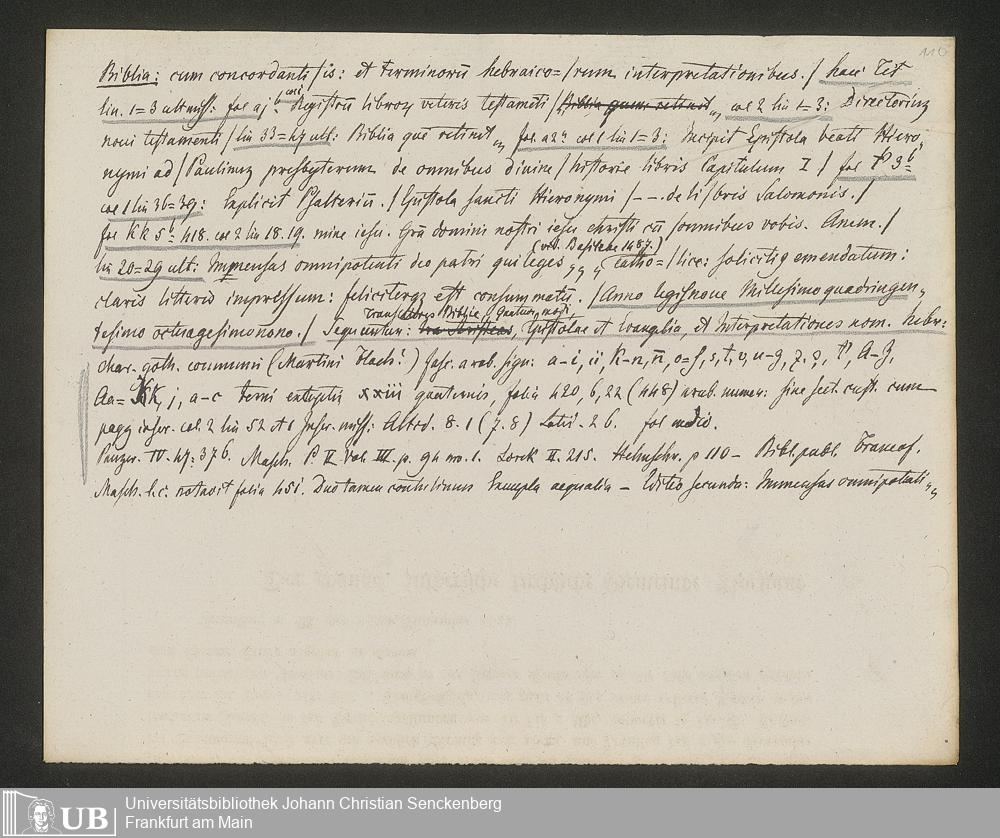 110
Biblia: cum concordanti/is: et terminorū hebraico=/rum interpretationibus./ haec Tit
lin. 1=3 alt miss: fol aj b col 1 Registrū libroꝝ veteris testamēti / Biblia quem retinet „ col 2 lin 1=3: Directoriuꝫ
noui testamenti / lin 33=47 ult: Biblia quē retinet „ fol a 2ᵃ col 1 lin 1=3: Incipit Epistola beati Hiero„
nymi ad / Paulinuꝫ presbyterum de omnibus divine / historie libris Capitulum I / fol P 3ᵇ
col 1 lin 36=39: Explicit Psalterium. / Epistola sancti Hieronymi / – – de li / bris Salomonis. /
fol KK 5ᵇ 418. col 2 lin 18.19. mine iesu. Grā domini nostri iesu christi cū / omnibus vobis. Amen. /
lin 20=29 ult: Immensas omnipotenti deo patri qui leges „ „ „ (vet. Basileae 1487.) catho=/lice: solicitiꝫ emendatum:
claris litteris impressum: feliciterqꝫ est consummatū. / Anno legisnoue Millesimoquadringen„
tesimo octuagesimonono. / Sequuntur: Translatores Biblie, Quatuor modi Epistolae et Evangelia, et Interpretationes nom. hebr:
Char. goth. communi (Martini Flach?) Insr. arab. sign: a–i, ii, k–n, n, o=ſ, s, t, v, u–y, z. A–Z.
Aa=KK, j, a–c terni exceptis xxiii quaternis, folia 420, 6, 22 (448) arab. numer: sine sect. cust. cum
pagg inscr. col. 2 lin 52 et 1 Inscr. miss: Altid. 8. 1 (7. 8) Latit. 26. fol medio.
Panzer. IV. 47. 376. Masch. P. II. Vol. III. p. 94 no. 1. Lorck II. 215. Helmschr. p 110 – Bibl. publ. Francof.
Masch. l.c. notavit folia 451. Duo tamen contulimus Exempla aequalia – Editio secunda: Immensas omnipotenti„„
UB
Universitätsbibliothek Johann Christian Senckenberg
Frankfurt am Main